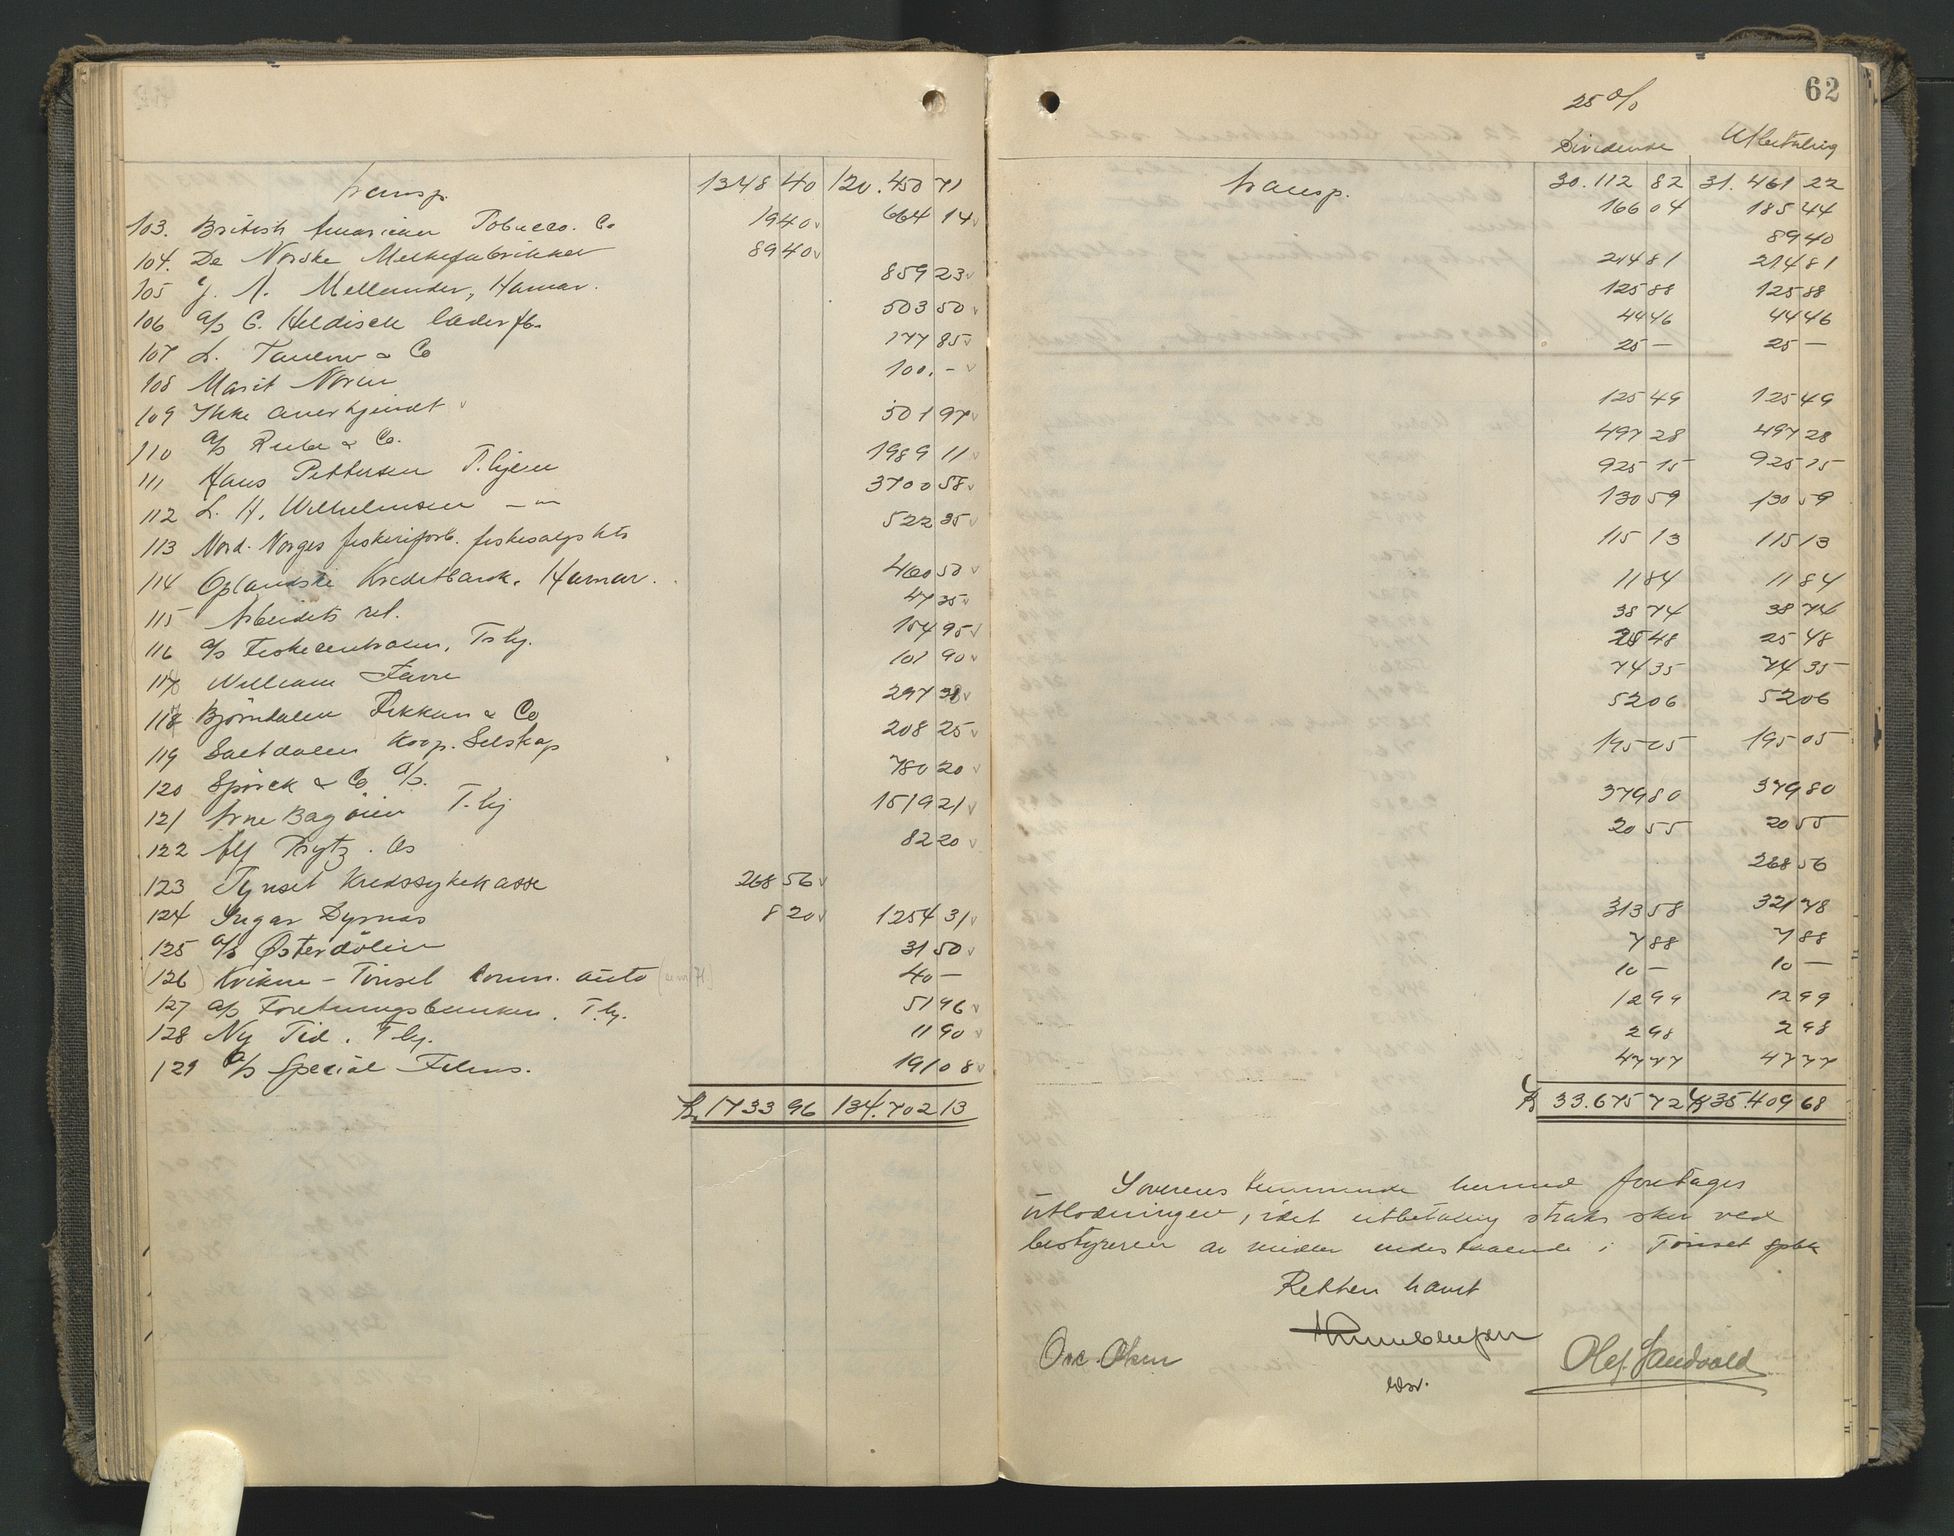 transp. 1348 40 120.450 71
103. British American Tobacco. Co 19 40 664 14
104. De Norske Melkefabrikker 89 40
105 J. A. Mellander, Hamar. 859 23
106 a/s C. Heldisch læderfb. 503 50
107 L. Taulow & Co 177 85
108 Marit Noren 100.-
109 Ikke anerkjendt
110 a/s Rieber & Co. 501 97
111 Hans Pettersen T.hjem 1989 11
112 L. H. Wilhelmsen – " – 3700 58
113 Nord-Norges fiskeriforb. fiskesalgskts 522 35
114 Oplandske Kreditbank. Hamar. 460 50
115 Arbeidets ret. 47 35
116 a/s Fiskecentralen, Trhj. 154 95
117 William Farre 101 90
118 Bjørndalen Fikkan & Co 297 38
119 Saltdalen Koop. Selskap 208 25
120 Spørck & Co a/s. 780 20
121 Arne Bagøien T.hj 1519 21
122 Alf Trytz. Os 82 20
123 Tynset Kredssykekasse 268 56
124 Ingar Dyrnæs 8 20 1254 31
125 a/s Østerdølen 31 50
(126) Kvikne - Tønset komm. auto 40 –
127 a/s Foretningsbanken. T.hj. 51 96
128 Ny Tid. T hj. 11 90
129 a/s Special Films. 191 08
Kr 1733 96 134.702 13
62
25 %
Dividende Utbetaling
transp. 30.112 82 31.461 22
166 04 185 44
89 40
214 81 214 81
125 88 125 88
44 46 44 46
25 – 25 –
125 49 125 49
497 28 497 28
925 15 925 15
130 59 130 59
115 13 115 13
11 84 11 84
38 74 38 74
25 48 25 48
74 35 74 35
52 06 52 06
195 05 195 05
379 80 379 80
20 55 20 55
268 56
313 58 321 78
7 88 7 88
10 – 10 –
12 99 12 99
2 98 2 98
47 77 47 77
Kr 33.675 72 Kr 35.409 68
I overensstemmende hermed foretages
utlodningen, idet utbetaling straks sker ved
bestyreren av midler indestaaende i Tønset spbk
Retten hævet
Ove. Olsen
Olaf Sandvold